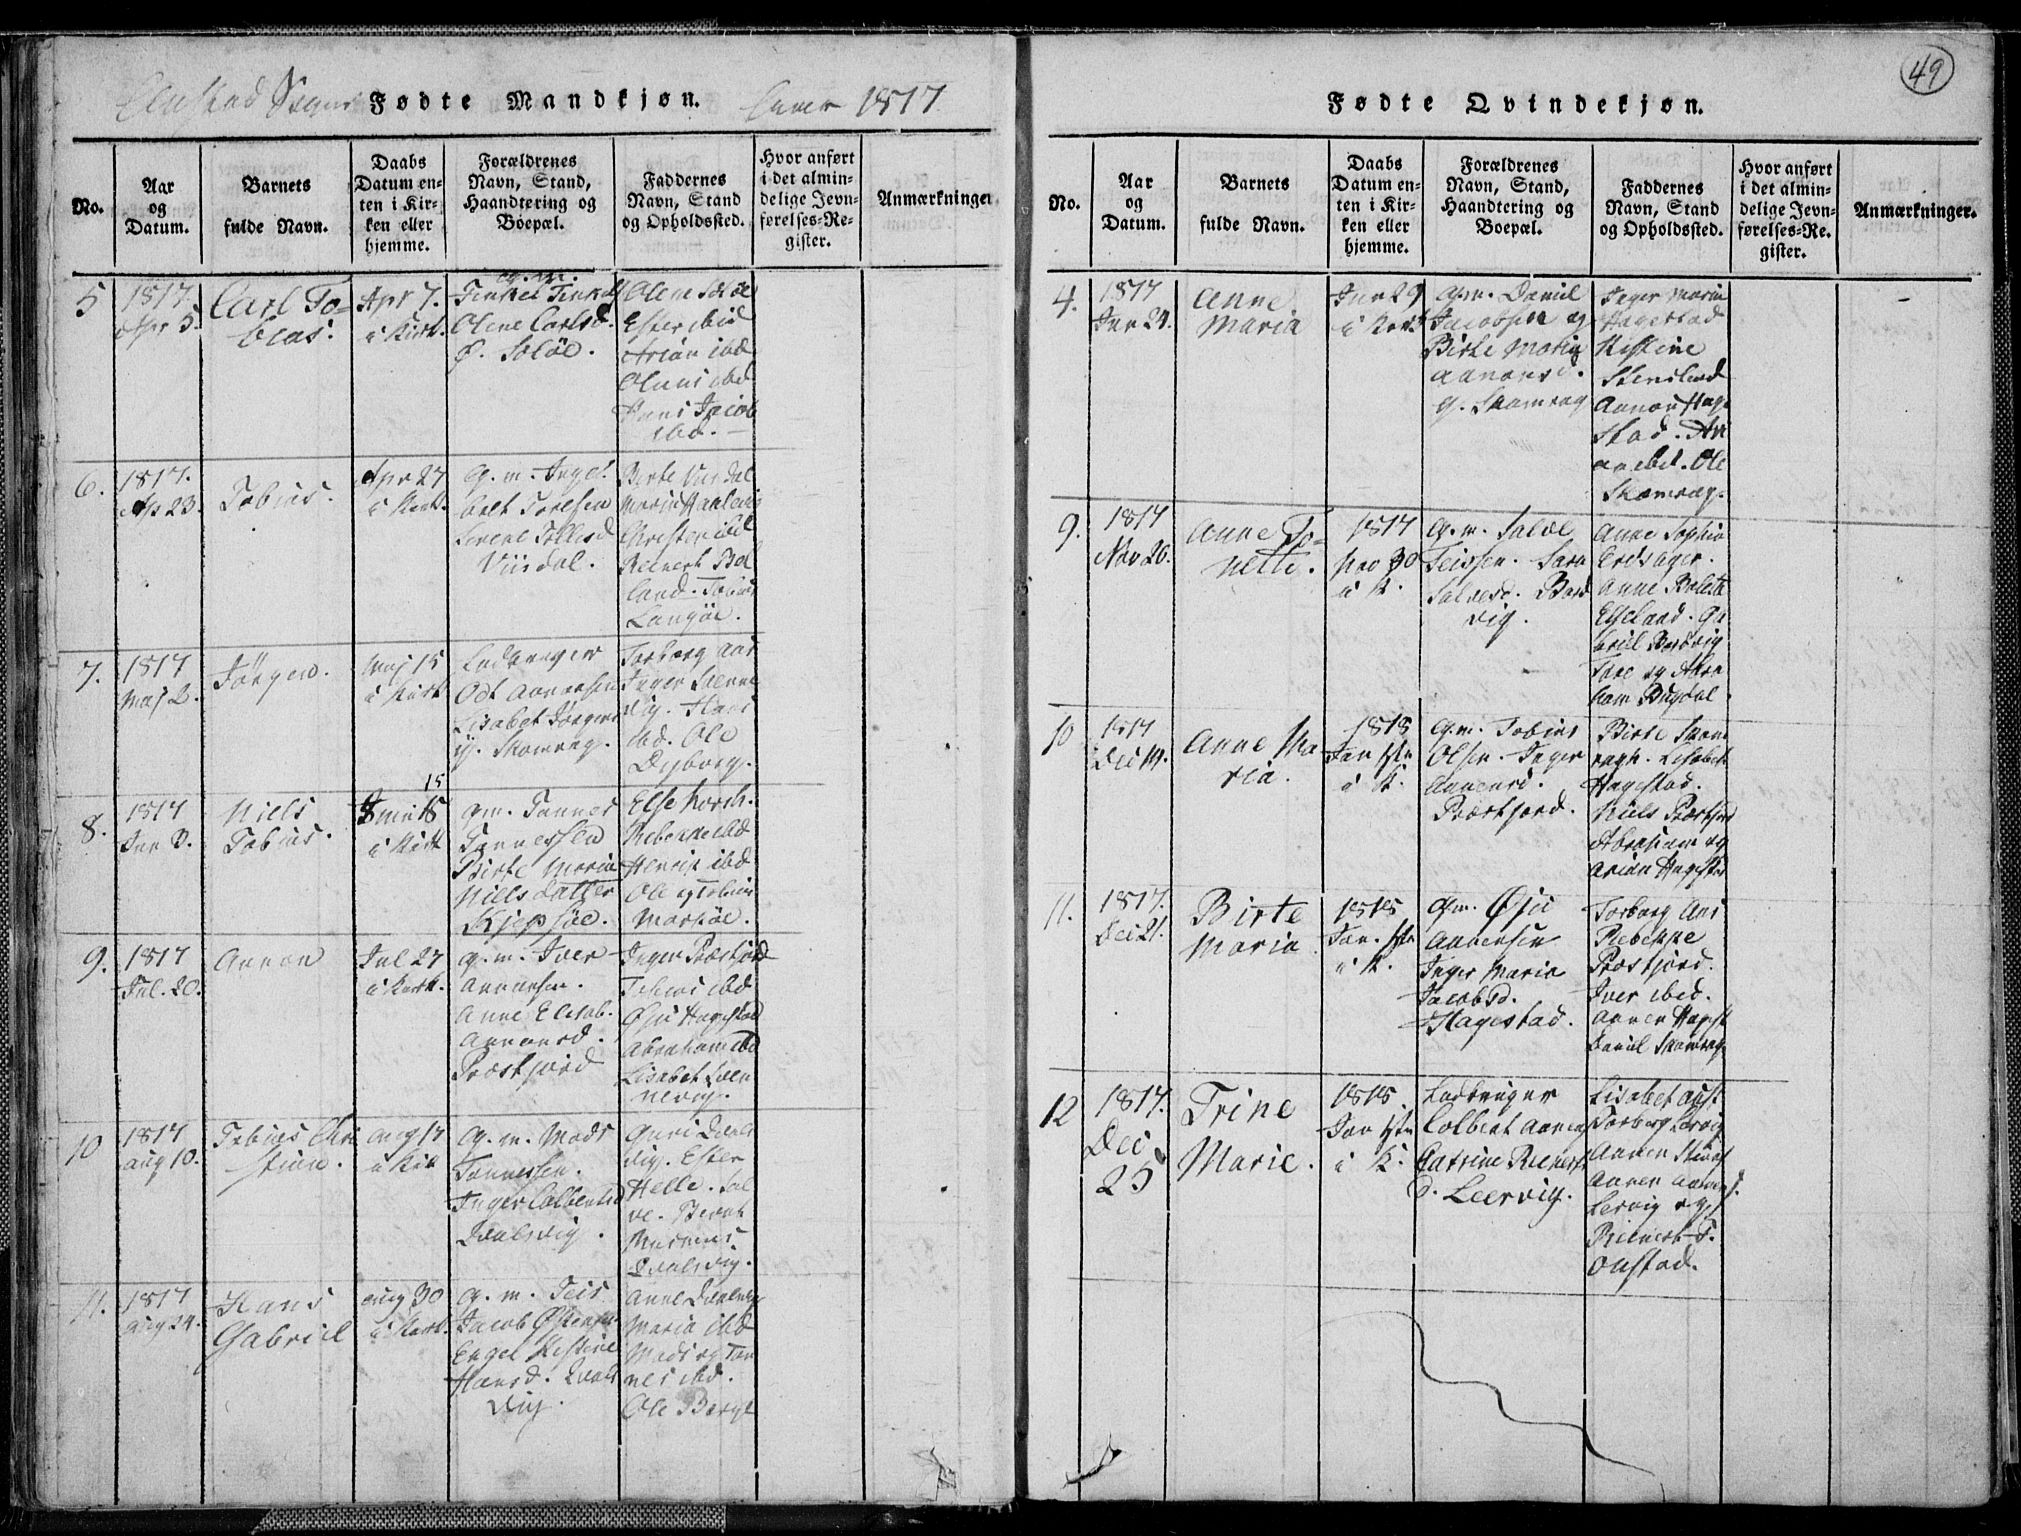 49
Sogn Fødte Mandkjøn. 1817
No.
Aar
og
Datum.
Barnets
fulde Navn.
Daabs
Datum en-
ten i Kir-
ken eller
hjemme.
Forældrenes
Navn, Stand,
Haandtering og
Boepæl.
Faddernes
Navn, Stand
og Opholdssted.
Hvor anført
i det almin-
delige Jevn-
førelses-Re-
gister.
Anmærkninger
5
1817.
Apr 5.
Carl To-
bias.
Apr 7.
i Kirk.
g. m.
Olene Carlsd.
Ø. Seløe.
Olene Seløe
Ester ibid
Arian ibd
ibd
Hans Jacob
ibd.
6.
1817.
Ap 23.
Tobias.
Apr 27
i Kirk.
g. m. Ingel
bret
Viisdal.
Birte Viisdal
Christen ibd
Reinert Bal
land. Tobias
Langøe.
7.
1817
Maj 2.
Jörgen.
Maj 15
i Kirk
Odt Aanensen
Lisabet Jørgens
g. Skomrag.
Torborg Aas
Inger Svenne
vig. Hans
ibd. Ole
Dyborg.
8.
1817
Jun 3.
Niels
Tobias.
15
i Kirk
g. m. Tønnes
Tønnessen
Birte Maria
Niels datter
Kjepsøe.
Else Korsh.
Rebekke ibd
Henrik ibd
Ole og Tobias
Markøe.
9.
1817
Jul. 20.
Aanon
Jul 27
i Kirk.
g. m. Iver
Aanensen.
Anne Elisab.
Aanensd.
Præstfjord
Inger Præstfjord
Tobias ibd
Øsu Hagestad
Abraham ibd
Lisabet Sven
nevig.
10
1817
Aug 10.
Tobias Chri
stian.
Aug 17
i Kirk
g. m. Mads
Tønnessen.
Inger Colbensd
Qvalsvig.
Guri Qvals
vig. Ester
Helle. Sal
ve. Berent
Qvalsvig.
11.
1817
Aug 24.
Hans
Gabriel
Aug 30
i Kirk.
g. m. Teis
Jacob Østensen
Engel Kistine
Hansd. Qvals
vig.
Anne Qvalsvig
Maria ibd
Mads og Tøn
nes ibd.
Ole Berge
Fødte Qvindekjøn.
No.
Aar
og
Datum.
Barnets
fulde Navn.
Daabs
Datum en-
ten i Kir-
ken eller
hjemme.
Forældrenes
Navn, Stand,
Haandtering og
Boepæl.
Faddernes
Navn, Stand
og Opholdssted.
Hvor anført
i det almin-
delige Jevn-
førelses-Re-
gister.
Anmærkninger.
4.
1817
Jun 24.
Anne
Maria
Jun 29
i Kirk
g. m. Daniel
Jacobsen og
Birte Maria
Aanensd.
g. Skomrag
Inger Maria
Hagestad
Kistine
Stensland
Aanon Hage
stad. An
ibd. Ole
Skomrag.
9.
1817
Nov 26.
Anne To-
nette.
1817
Nov 30
i K.
g. m. Salve
Teissen. Sara
Salvesd. Bord
vig.
Anne Sophia
Erdsager.
Anne Bolette
Elseland. Ga
briel Bordvig
Tore og Abra
ham Bugdal.
10
1817
Dec 14.
Anne Ma
ria.
1818
Jan 1ste
i K.
g. m. Tobias
Olsen. Inger
Aanensd.
Præstfjord.
Birte Skom
ragh. Lisabet
Hagestad.
Niels Præstfjord
Abraham og
Arian Hagestad
11.
1817.
Dec 21.
Birte
Maria
1818
Jan. 1ste
i K.
g. m. Øsu
Aanensen
Inger Maria
Jacobsd.
Hagestad.
Torborg Aas
Rebekke
Præstfjord.
Iver ibid.
Aanen Hagest
Daniel Skomrag
12
1817.
Dec
25
Trine
Marie.
1818.
Jan 1ste
i K.
Ladbruger
Colbent Aanens
Catrine Reiners
d. Leervig.
Torborg Lervig
Lervig og
Reinert T.
Onstad.